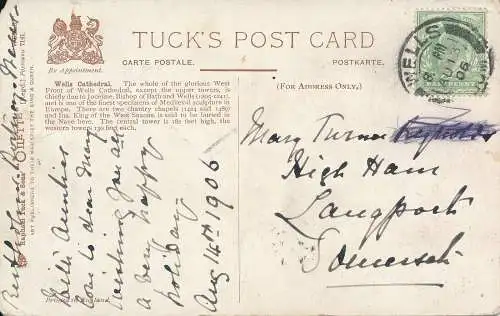 TUCK'S POST CARD
CARTE POSTALE.
POSTKARTE.
By Appointment.
(FOR ADDRESS ONLY.)
Wells Cathedral. The whole of the glorious West
Front of Wells Cathedral, except the upper towers, is
chiefly due to Joceline, Bishop of Bath and Wells (1206-1242),
and is one of the finest specimens of Mediæval sculpture in
Europe. There are two chantry chapels (1424 and 1489)
and Ina, King of the West Saxons, is said to be buried in
the Nave here. The central tower is 182 feet high, the
western towers 130 feet each.
Raphael Tuck & Sons'
ART PUBLISHERS TO THEIR MAJESTIES THE KING & QUEEN.
Printed in England.
WELLS
06
HALFPENNY
Mary Turner Reynolds
High Ham
Langport
Somerset
Auntie's
love to dear Mary
wishing you all
a very happy
holiday.
Aug 14th 1906